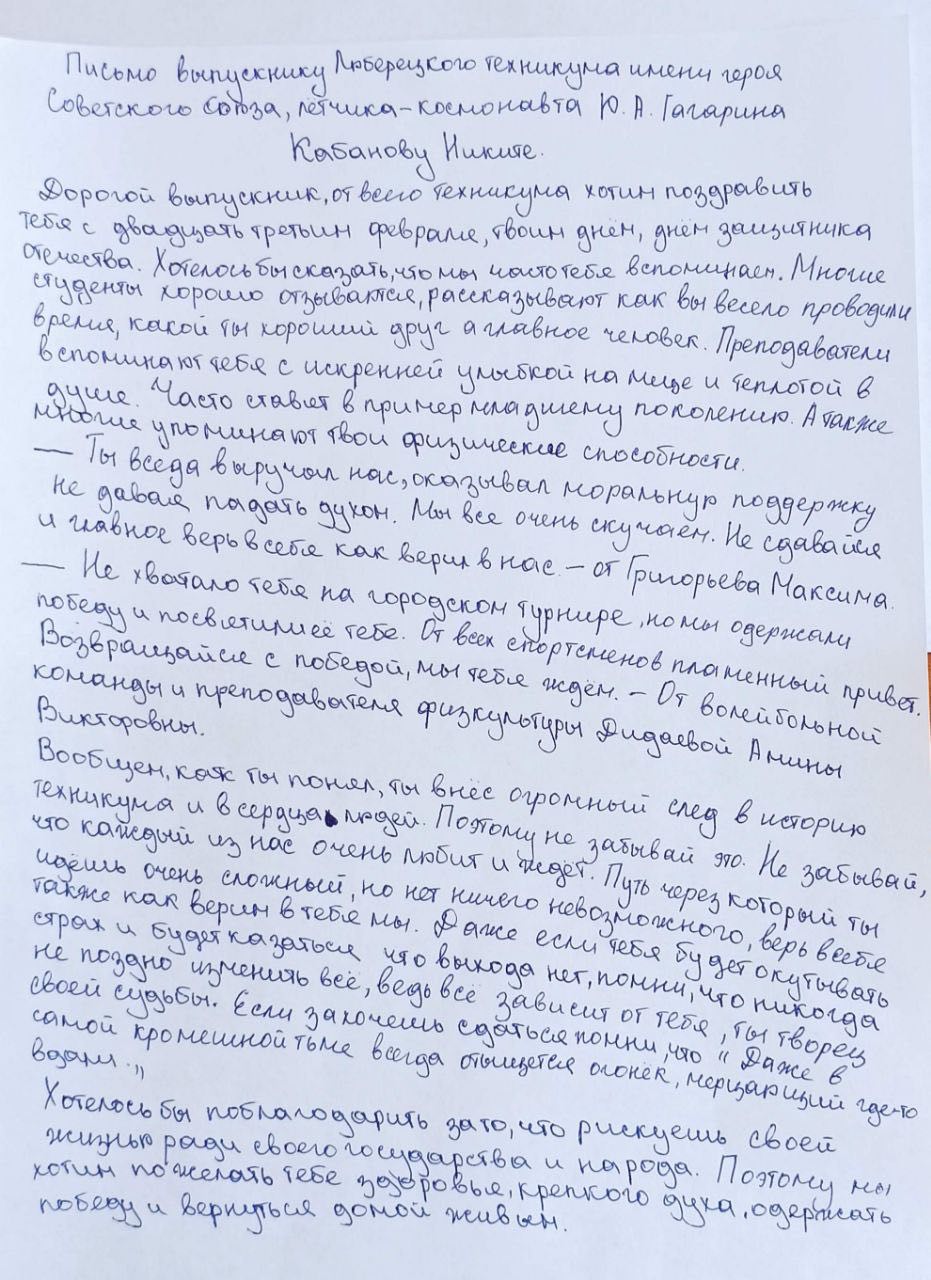 Письмо выпускнику Люберецкого техникума имени героя
Советского Союза, лётчика-космонавта Ю.А. Гагарина
Кабанову Никите.
Дорогой выпускник, от всего техникума хотим поздравить
тебя с двадцать третьим февраля, твоим днём, днём защитника
отечества. Хотелось бы сказать, что мы часто тебя вспоминаем. Многие
студенты хорошо отзываются, рассказывают как вы весело проводили
время, какой ты хороший друг а главное человек. Преподаватели
вспоминают тебя с искренней улыбкой на лице и теплотой в
душе. Часто ставят в пример младшему поколению. А также
многие упоминают твои физические способности.
— Ты всегда выручал нас, оказывал моральную поддержку
не давая падать духом. Мы все очень скучаем. Не сдавайся
и главное верь в себя как верил в нас. – от Григорьева Максима.
— Не хватало тебя на городском турнире, но мы одержали
победу и посвятили её тебе. От всех спортсменов пламенный привет.
Возвращайся с победой, мы тебя ждём. – От волейбольной
команды и преподавателя физкультуры Дидаевой Амины
Викторовны.
Вообщем, как ты понял, ты внёс огромный след в историю
техникума и в сердца людей. Поэтому не забывай это. Не забывай,
что каждый из нас очень любит и ждёт. Путь через который ты
идёшь очень сложный, но нет ничего невозможного, верь в себя
также как верим в тебя мы. Даже если тебя будет окутывать
страх и будет казаться что выхода нет, помни, что никогда
не поздно изменить всё, ведь всё зависит от тебя, ты творец
своей судьбы. Если захочешь сдаться помни, что "Даже в
самой кромешной тьме всегда отыщется огонёк, мерцающий где-то
вдали.„
Хотелось бы поблагодарить за то, что рискуешь своей
жизнью ради своего государства и народа. Поэтому мы
хотим пожелать тебе здоровья, крепкого духа, одержать
победу и вернуться домой живым.